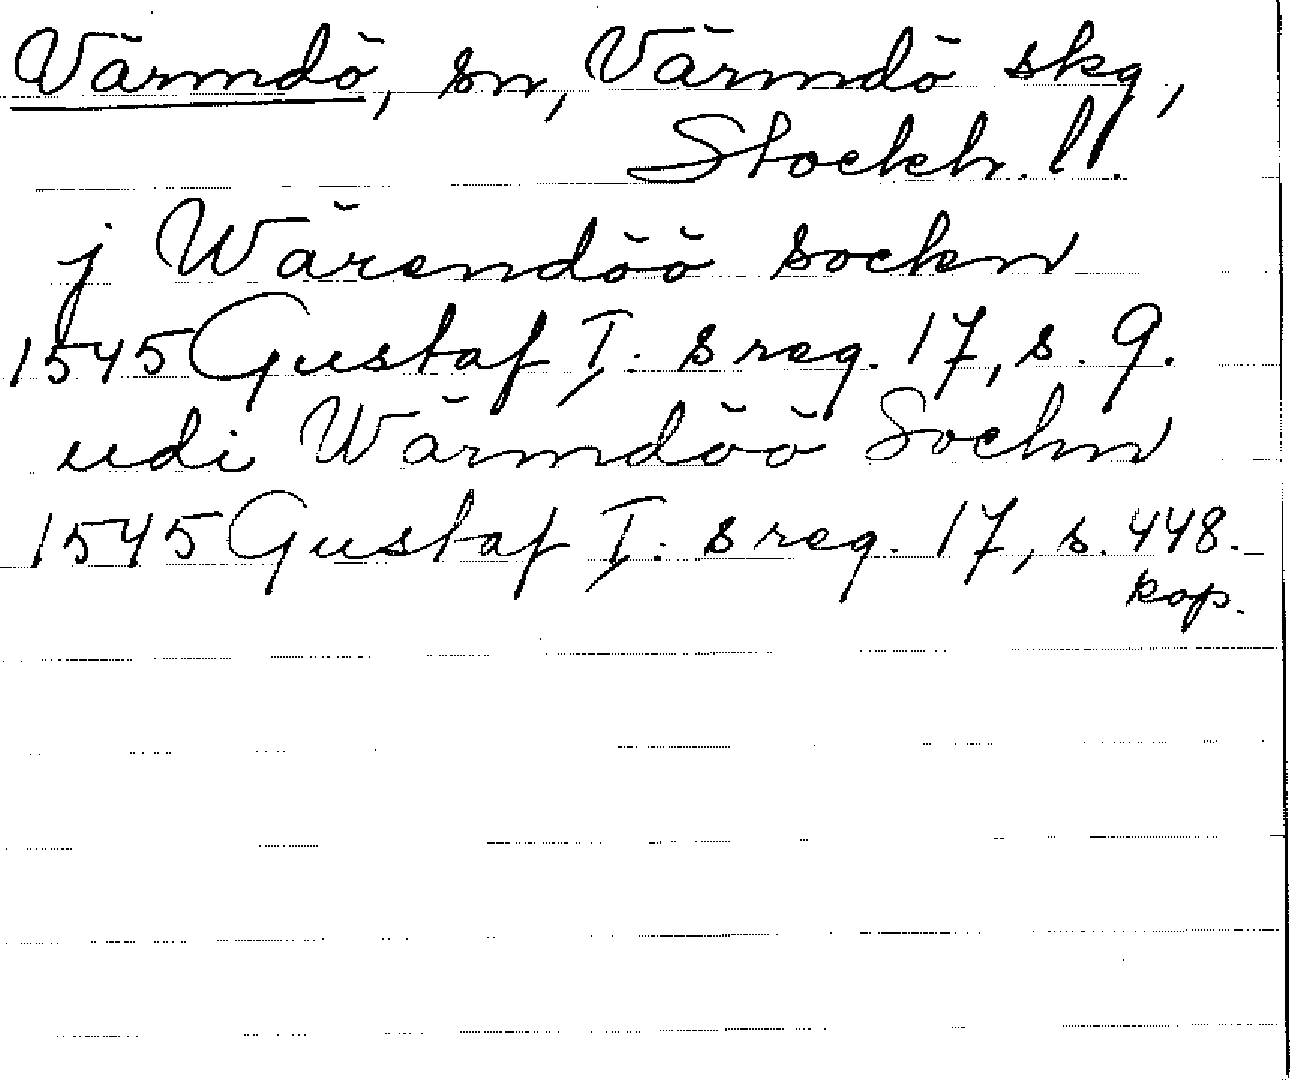 Värmdö, sn, Värmdö skg,
Stockh. l.
j Wärendöö sockn
1545 Gustaf I. s reg. 17, s. 9.
udi Wärmdöö Sockn
1545 Gustaf I. s reg. 17, s. 448.
kop.